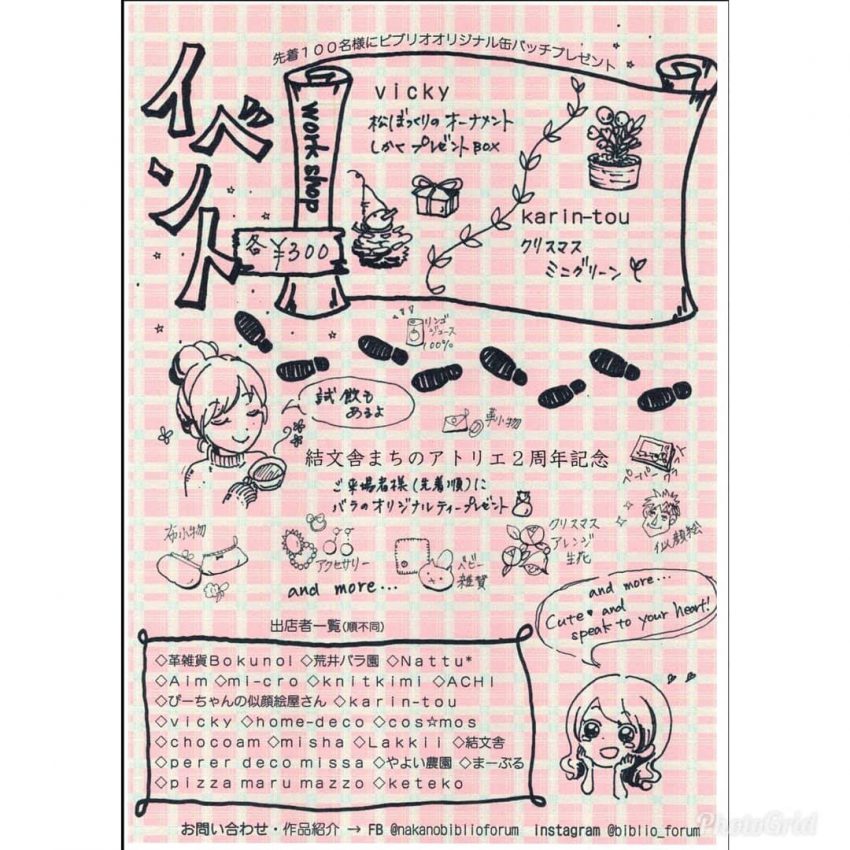 先着１００名様にビブリオオリジナル缶バッチプレゼント
イベント
work shop
各¥300
vicky
松ぼっくりのオーナメント
しかくプレゼントBOX
karin-tou
クリスマス
ミニグリーン
リンゴ
ジュース
100%
試飲も
あるよ
革小物
結文舎まちのアトリエ２周年記念
ご来場者様(先着順)に
バラのオリジナルティープレゼント
ペーパー
似顔絵
布小物
アクセサリー
ベビー
雑貨
クリスマス
アレンジ
生花
and more...
and more...
Cute♥and
speak to your heart!
出店者一覧(順不同)
◇革雑貨Bokunoi ◇荒井バラ園 ◇Nattu*
◇Aim ◇mi-cro ◇knitkimi ◇ACHI
◇ぴーちゃんの似顔絵屋さん ◇karin-tou
◇vicky ◇home-deco ◇cos☆mos
◇chocoam ◇misha ◇Lakkii ◇結文舎
◇perer deco missa ◇やよい農園 ◇まーぶる
◇pizza maru mazzo ◇keteko
お問い合わせ・作品紹介 → FB @nakanobiblioforum Instagram @biblio_forum
PhotoGrid